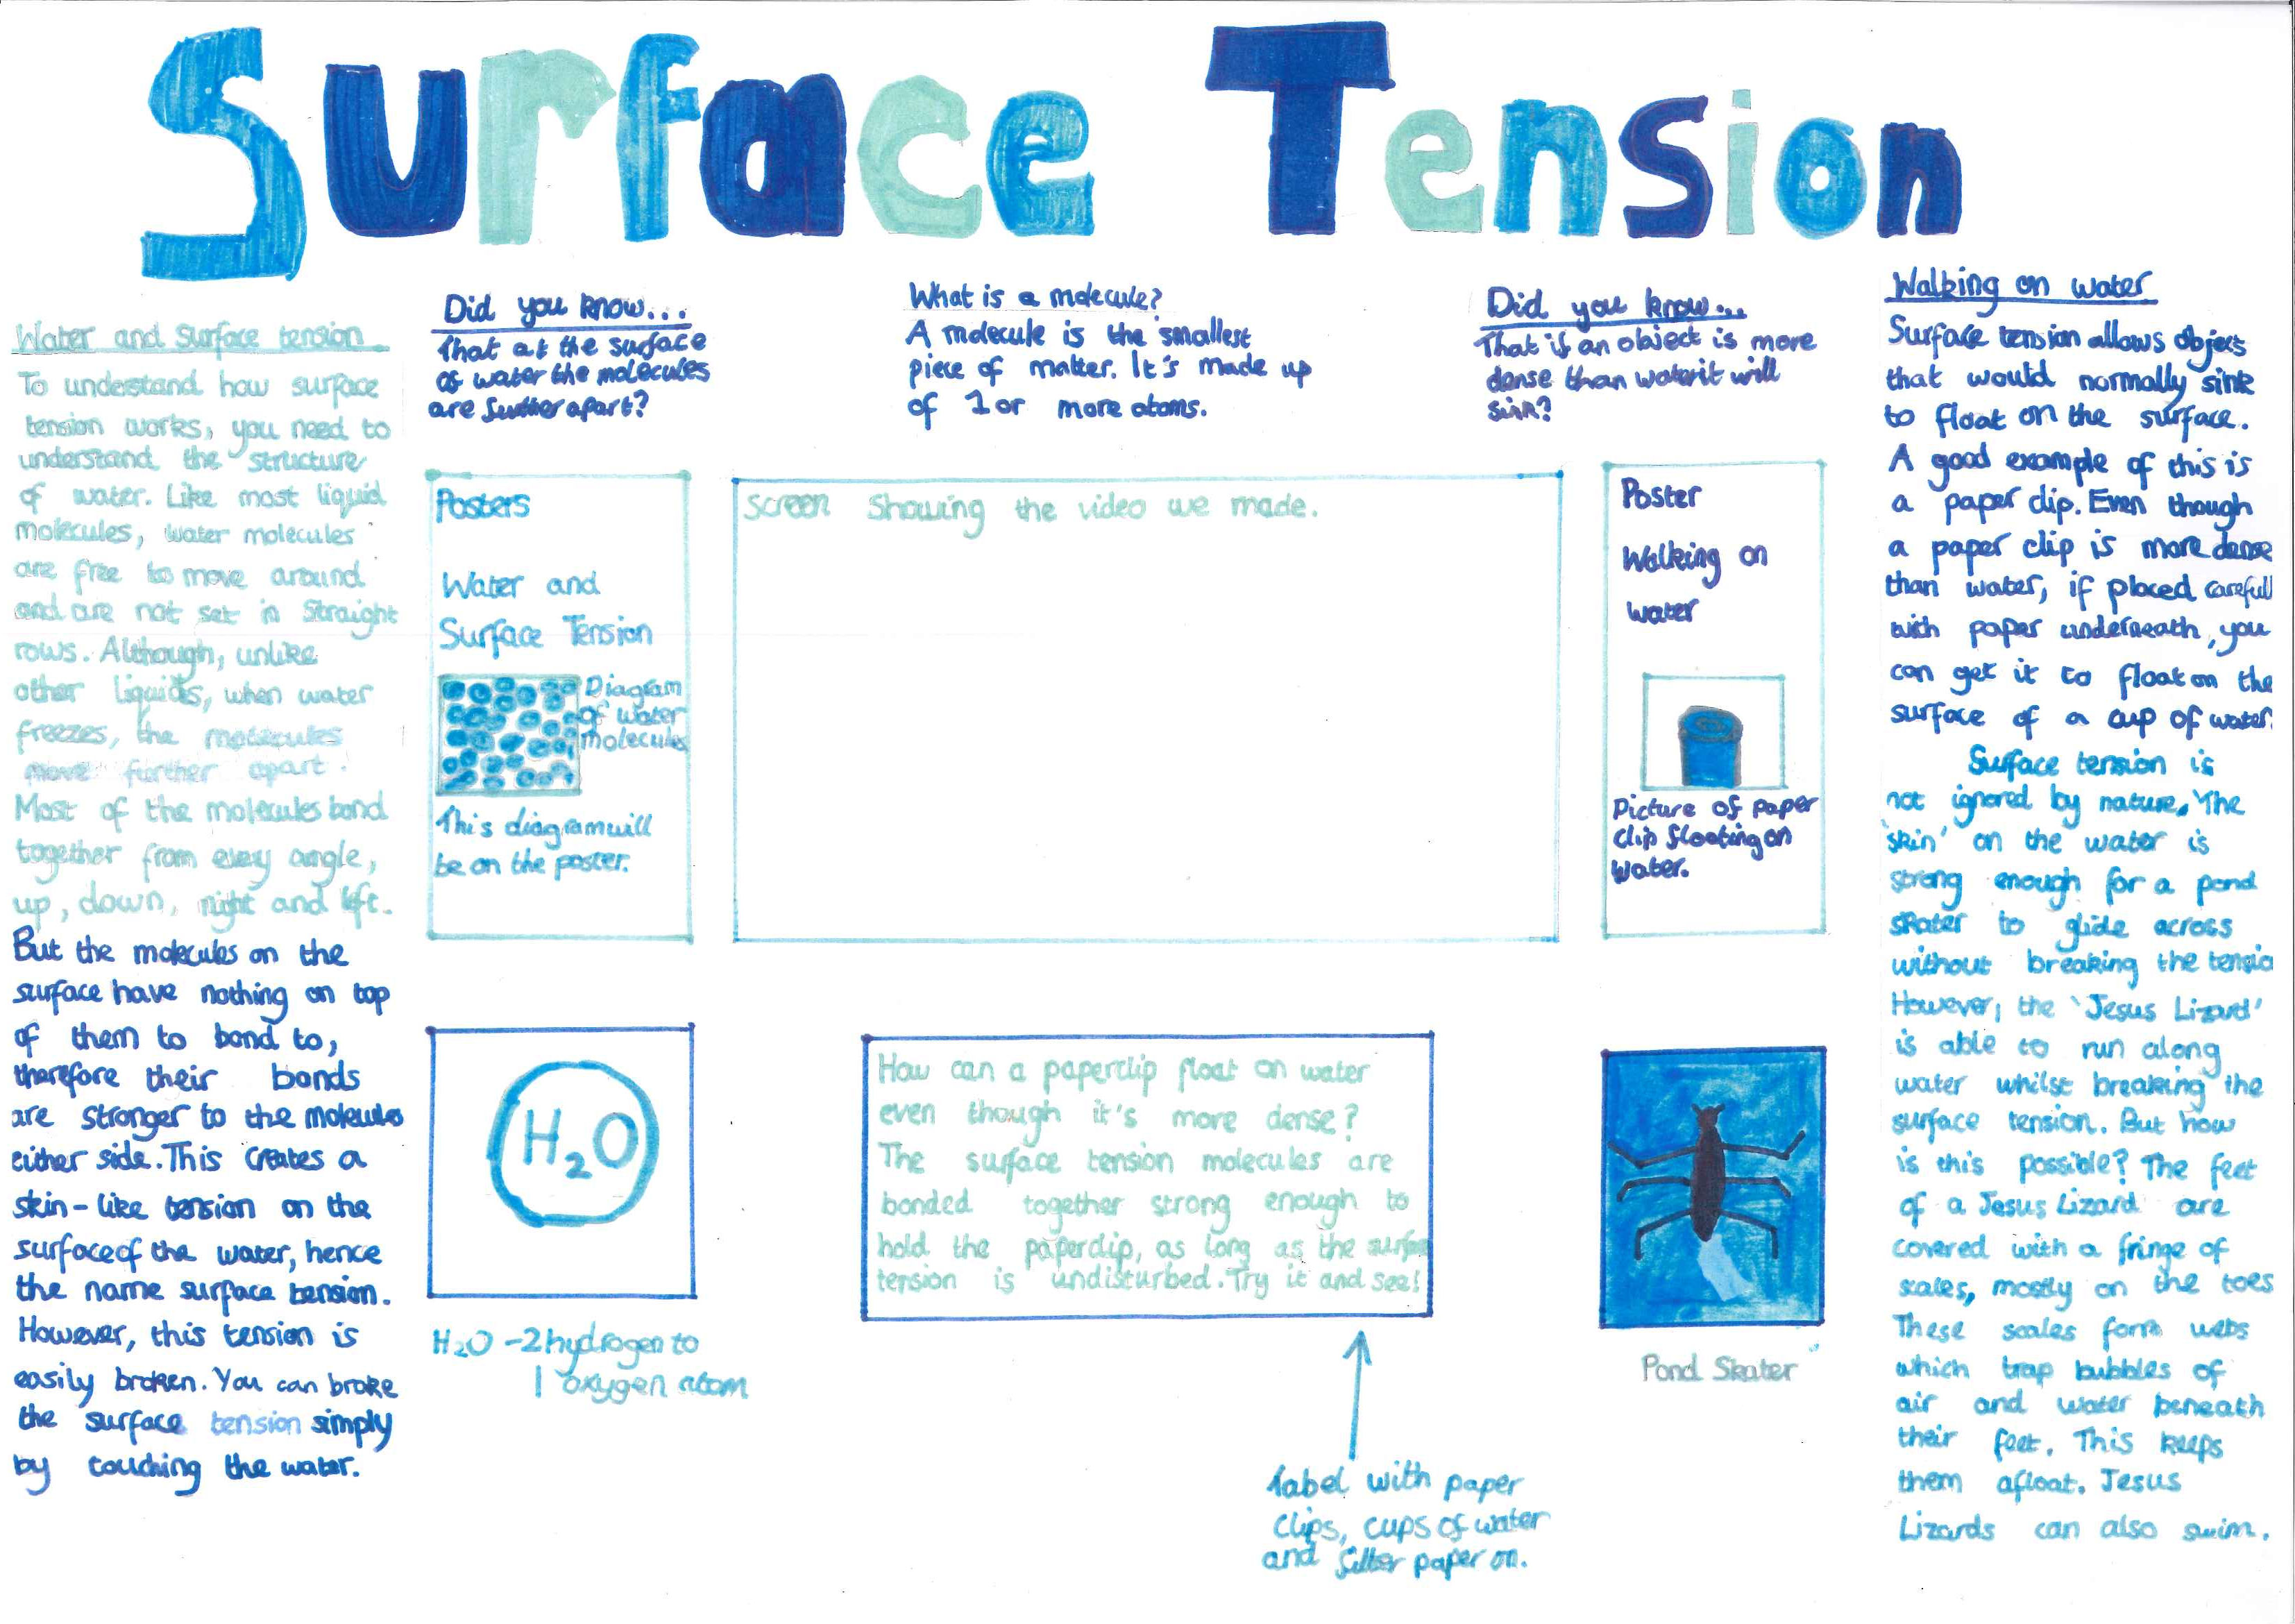 Surface Tension
Water and Surface tension
To understand how surface
tension works, you need to
understand the structure
of water. Like most liquid
molecules, water molecules
are free to move around
and are not set in Straight
rows. Although, unlike
other liquids, when water
freezes, the molecules
move further apart.
Most of the molecules bond
together from every angle,
up, down, right and left.
But the molecules on the
surface have nothing on top
of them to bond to,
therefore their bonds
are stronger to the molecules
either side. This creates a
skin-like tension on the
surface of the water, hence
the name surface tension.
However, this tension is
easily broken. You can broke
the surface tension simply
by touching the water.
Did you know...
That at the surface
of water the molecules
are further apart?
What is a molecule?
A molecule is the smallest
piece of matter. It's made up
of 1 or more atoms.
Did you know...
That if an object is more
dense than water it will
sink?
Posters
Water and
Surface Tension
Diagram
of water
molecules
This diagram will
be on the poster.
screen showing the video we made.
Poster
Walking on
water
Picture of paper
clip floating on
water.
H₂O
H₂O - 2 hydrogen to
1 oxygen atom
How can a paperclip float on water
even though it's more dense?
The surface tension molecules are
bonded together strong enough to
hold the paperclip, as long as the surface
tension is undisturbed. Try it and see!
label with paper
clips, cups of water
and filter paper on.
Pond Skater
Walking on water
Surface tension allows objects
that would normally sink
to float on the surface.
A good example of this is
a paper clip. Even though
a paper clip is more dense
than water, if placed carefull
with paper underneath, you
can get it to float on the
surface of a cup of water.
Surface tension is
not ignored by nature. The
'skin' on the water is
strong enough for a pond
skater to glide across
without breaking the tensio
However, the 'Jesus Lizard'
is able to run along
water whilst breaking the
surface tension. But how
is this possible? The feet
of a Jesus Lizard are
covered with a fringe of
scales, mostly on the toes
These scales form webs
which trap bubbles of
air and water beneath
their feet. This keeps
them afloat. Jesus
Lizards can also swim.